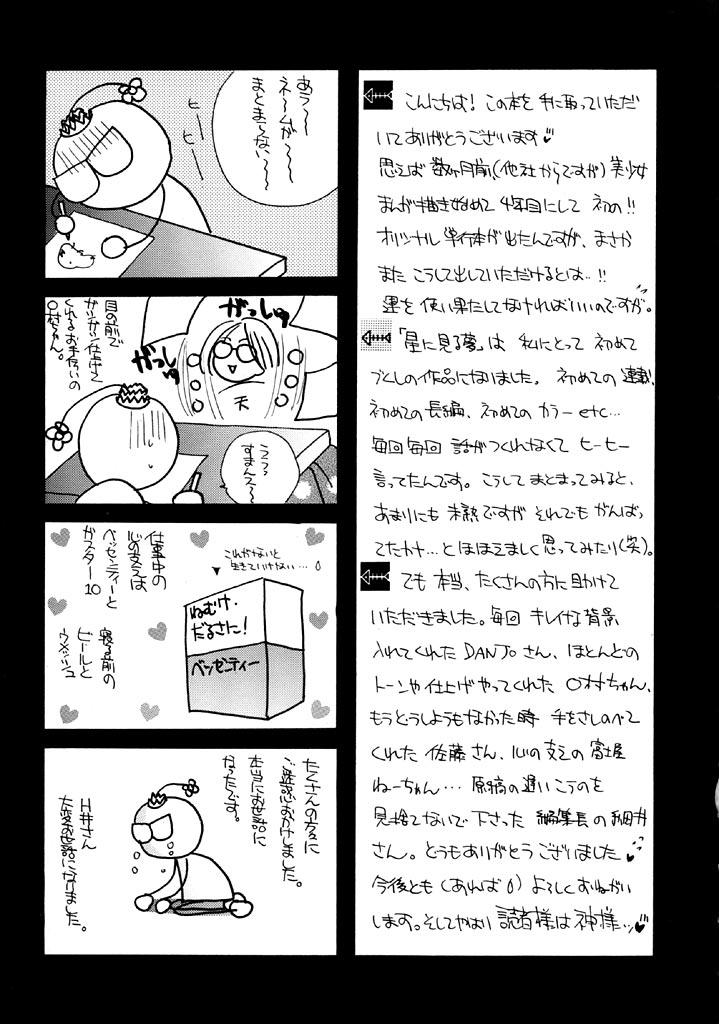 こんにちは！この本を手に取っていただ
いてありがとうございます
思えば数ヶ月前、(他社からですが)美少女
まんが描き始めて4年目にして初の!!
オリジナル単行本が出たんですが、まさか
またこうして出していただけるとは…!!
運を使い果たしてなければいいのですが。
「星に見る夢」は私にとって初めて
づくしの作品になりました。初めての連載、
初めての長編、初めてのカラーetc…
毎回毎回話がつくれなくてヒーヒー
言ってたんです。こうしてまとまってみると、
あまりにも未熟ですがそれでもがんばっ
てたかナ…とほほえましく思ってみたり(笑)。
でも本当、たくさんの方に助けて
いただきました。毎回キレイな背景
入れてくれたDANJoさん、ほとんどの
トーンや仕上げやってくれた〇村ちゃん、
もうどうしようもなかった時手をさしのべて
くれた佐藤さん、心の支えの富士屋
ねーちゃん…原稿の遅いこのを
見捨てないで下さった編集長の細井
さん。どうもありがとうございました
今後とも(あれば)よろしくおねがい
します。そしてやはり読者様は神様…
あう〜〜
ネームが〜〜
まとまらない〜〜
ヒー
ヒー
目の前で
ガツガツ仕上げて
くれるお手伝いの
〇村ちゃん。
がっしゅ
がっしゅ
天
うう〜
すまんえ〜
仕事中の
心の支えは
ベッセンティーと
ガスター10
寝る前の
ビールと
ウメッシュ
これがないと
生きていけない…
ねむけ・
だるさに！
ベッセンティー
たくさんの方々に
ご迷惑おかけしました。
本当にお世話に
なったです。
H井さん
大変お世話になりました。